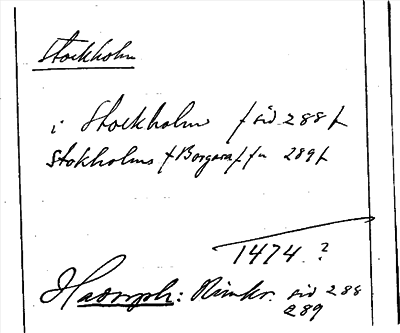 Stockholm
i Stockholm /sid 288/
Stokholms /Borgara/ /" 289/
1474.?
Hadorph: Rimkr. sid 288
289